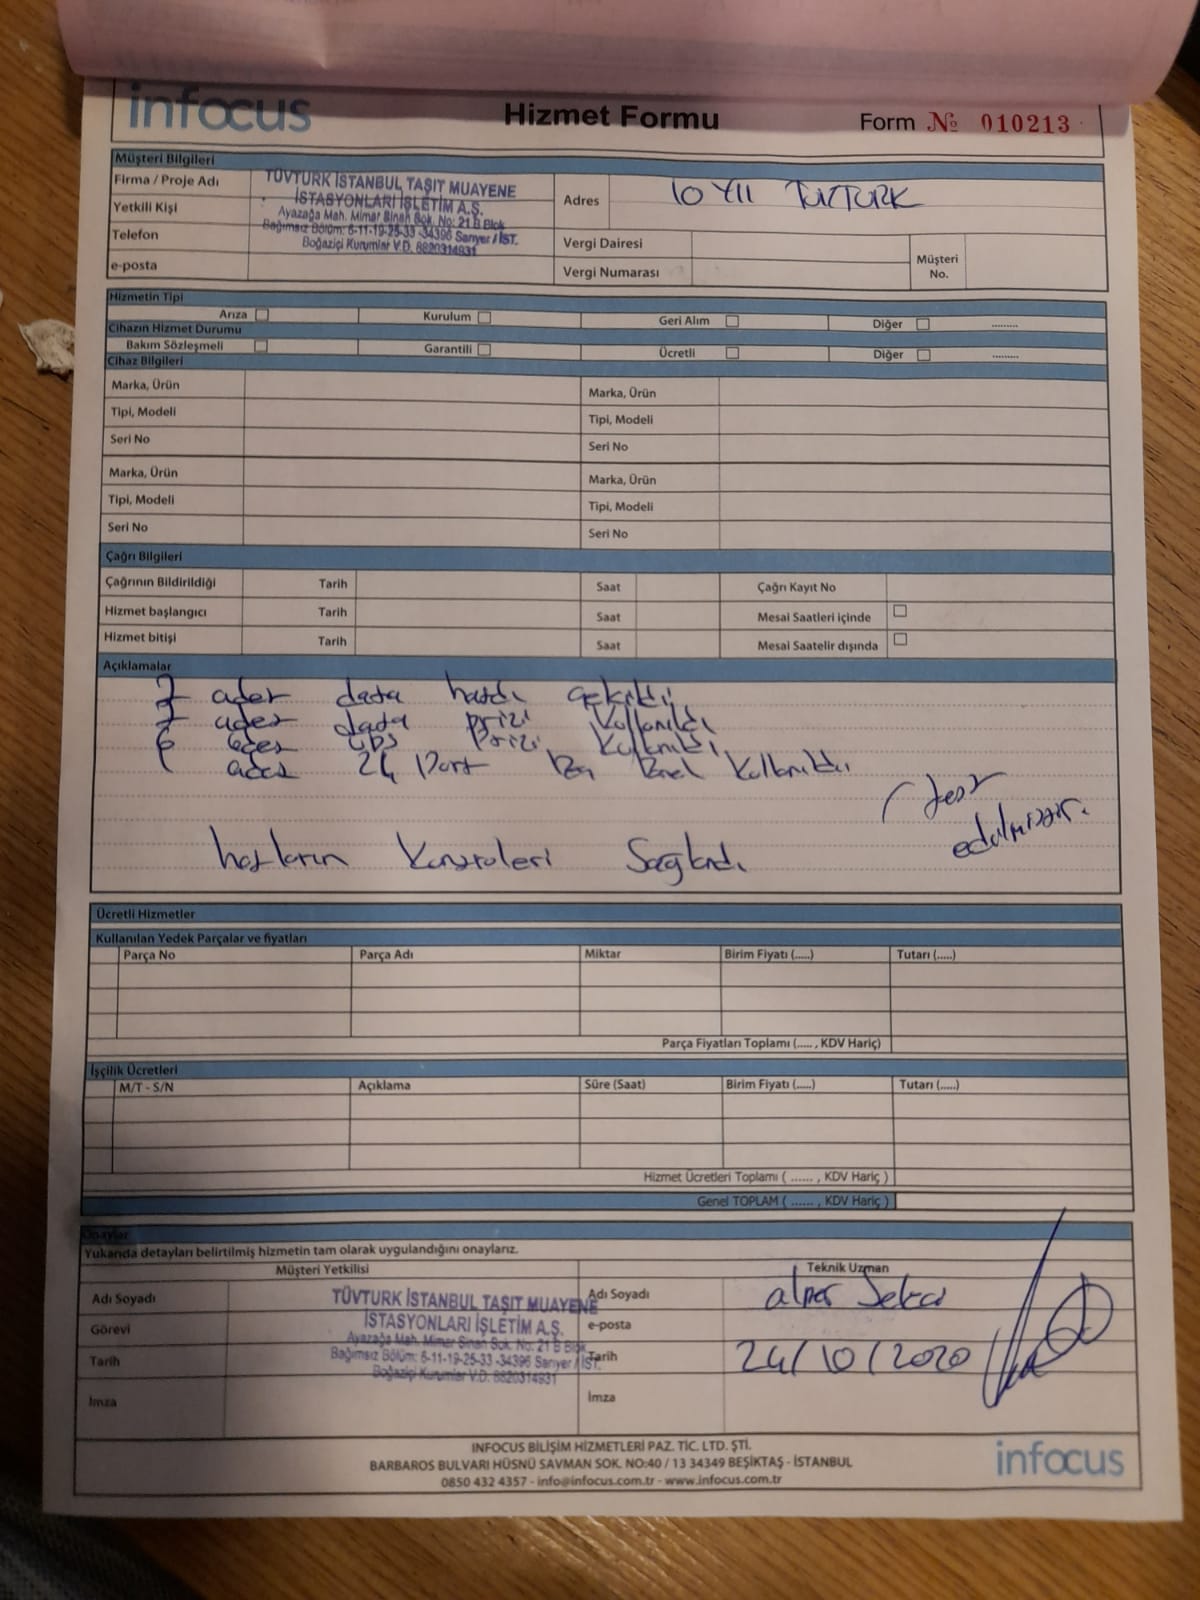 infocus
Hizmet Formu
Form № 010213
Müşteri Bilgileri
Firma / Proje Adı
TÜVTURK İSTANBUL TAŞIT MUAYENE
İSTASYONLARI İŞLETİM A.Ş.
Ayazağa Mah. Mimar Sinan Sok. No: 21 B Blok
Bağımsız Bölüm: 6-11-19-25-33 -34396 Sarıyer / İST.
Boğaziçi Kurumlar V.D. 8820314931
Yetkili Kişi
Telefon
e-posta
Adres
10 YII TUVTURK
Vergi Dairesi
Vergi Numarası
Müşteri
No.
Hizmetin Tipi
Arıza Kurulum Geri Alım Diğer .........
Cihazın Hizmet Durumu
Bakım Sözleşmeli Garantili Ücretli Diğer .........
Cihaz Bilgileri
Marka, Ürün Marka, Ürün
Tipi, Modeli Tipi, Modeli
Seri No Seri No
Marka, Ürün Marka, Ürün
Tipi, Modeli Tipi, Modeli
Seri No Seri No
Çağrı Bilgileri
Çağrının Bildirildiği Tarih Saat Çağrı Kayıt No
Hizmet başlangıcı Tarih Saat Mesai Saatleri içinde
Hizmet bitişi Tarih Saat Mesai Saatelir dışında
Açıklamalar
7 adet data hattı çekildi
7 adet data prizi kullanıldı
6 adet ups prizi kullanıldı
1 adet 24 Port Panel kullanıldı
test
edilmiştir.
hatların kontroleri Sağlandı
Ücretli Hizmetler
Kullanılan Yedek Parçalar ve fiyatları
Parça No Parça Adı Miktar Birim Fiyatı (.....) Tutarı (.....)
Parça Fiyatları Toplamı (..... , KDV Hariç)
İşçilik Ücretleri
M/T - S/N Açıklama Süre (Saat) Birim Fiyatı (.....) Tutarı (.....)
Hizmet Ücretleri Toplamı ( ...... , KDV Hariç )
Genel TOPLAM ( ...... , KDV Hariç )
Onaylar
Yukarıda detayları belirtilmiş hizmetin tam olarak uygulandığını onaylarız.
Müşteri Yetkilisi
Teknik Uzman
Adı Soyadı
Görevi
Tarih
İmza
TÜVTURK İSTANBUL TAŞIT MUAYENE
İSTASYONLARI İŞLETİM A.Ş.
Ayazağa Mah. Mimar Sinan Sok. No: 21 B Blok
Bağımsız Bölüm: 6-11-19-25-33 -34396 Sarıyer / İST.
Boğaziçi Kurumlar V.D. 8820314931
Adı Soyadı
alper
e-posta
Tarih
24/10/2020
İmza
INFOCUS BİLİŞİM HİZMETLERİ PAZ. TİC. LTD. ŞTİ.
BARBAROS BULVARI HÜSNÜ SAVMAN SOK. NO:40 / 13 34349 BEŞİKTAŞ - İSTANBUL
0850 432 4357 - info@infocus.com.tr - www.infocus.com.tr
infocus